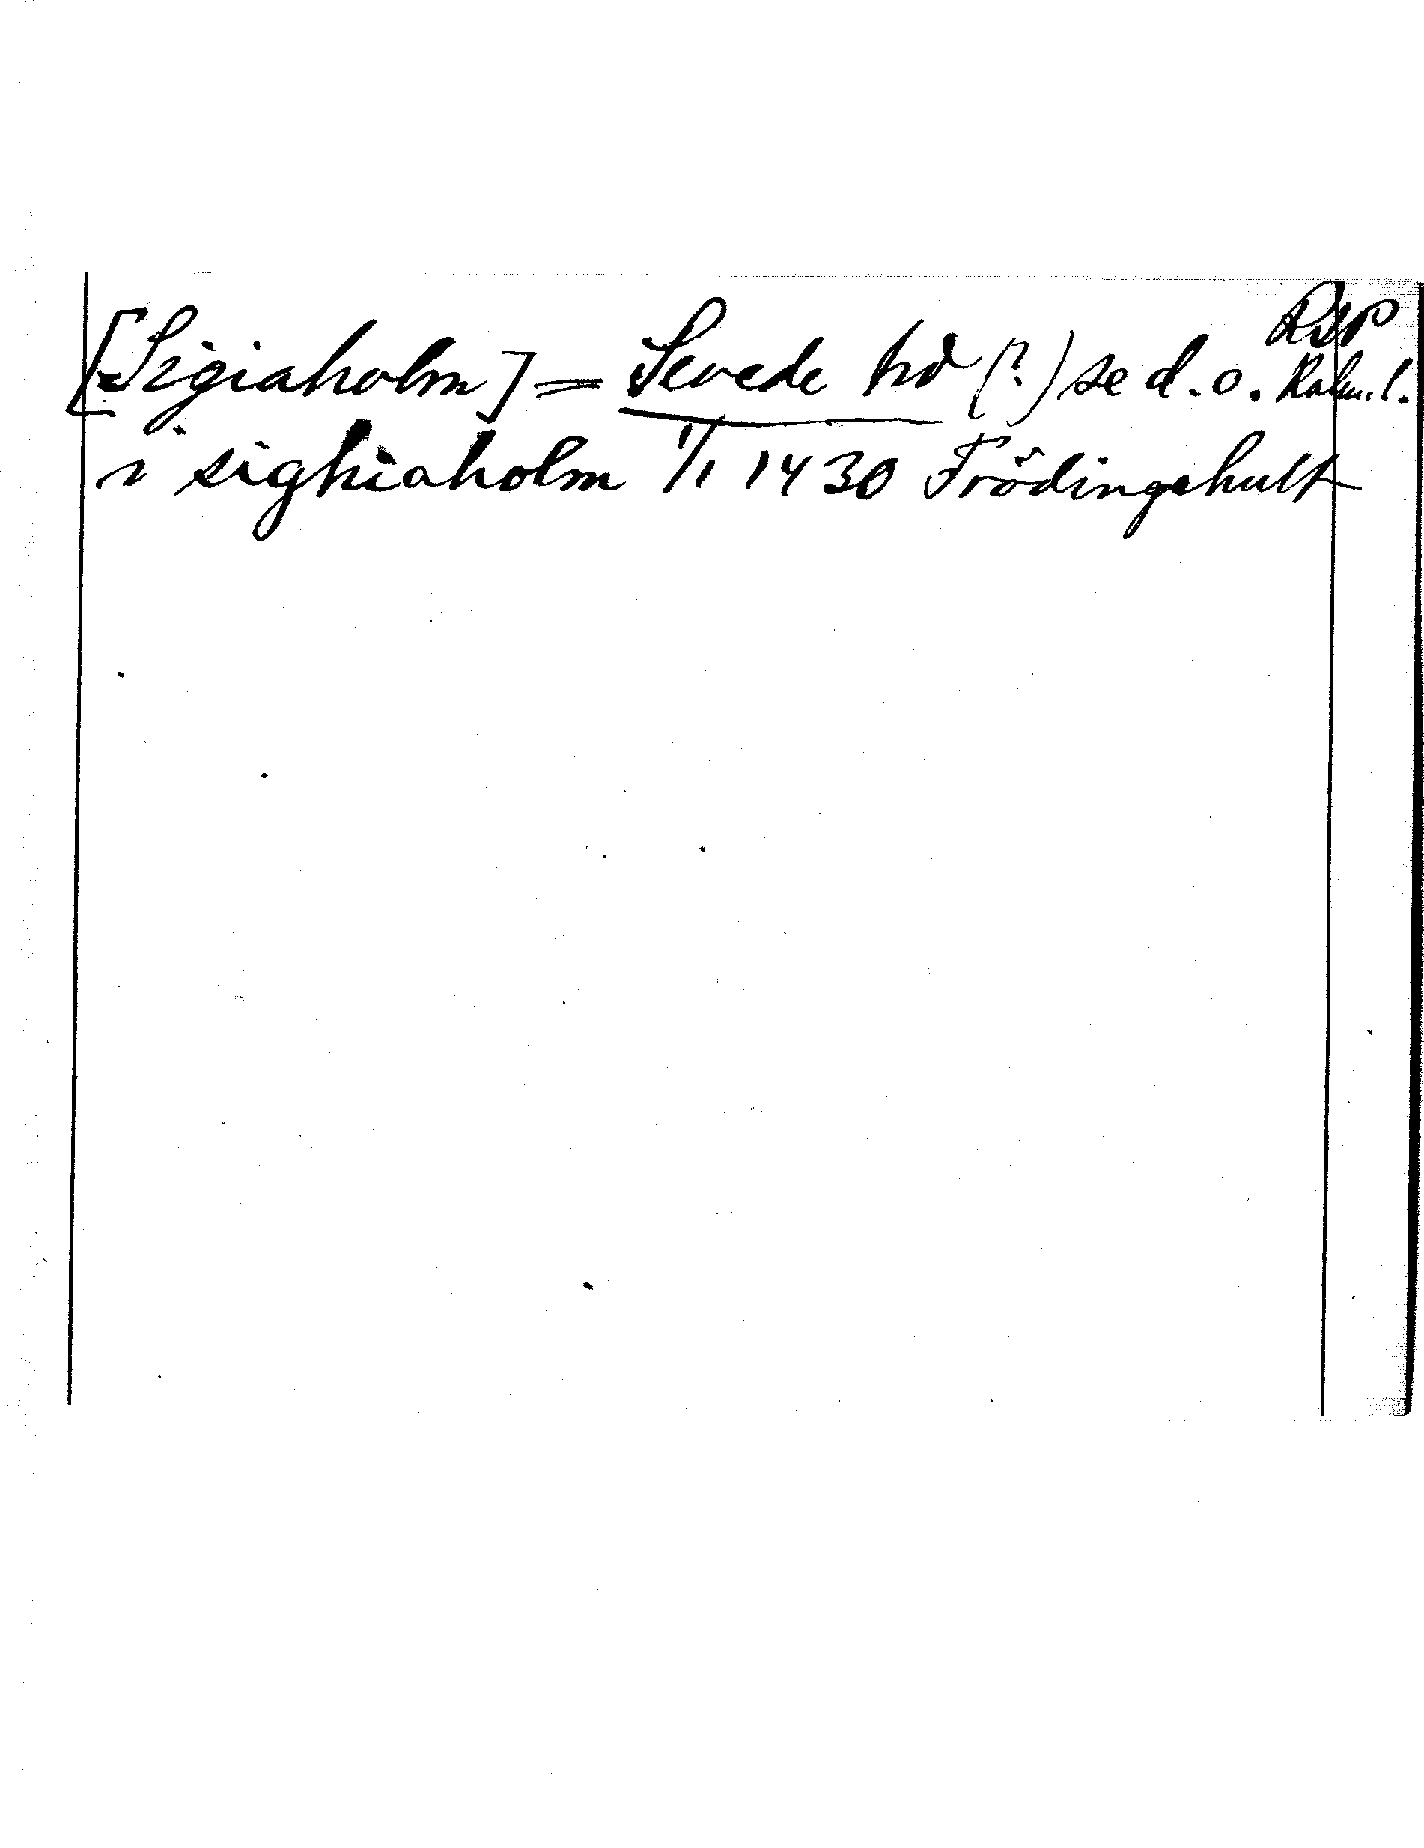 RAP
[Sigiaholm] = Sevede hd (?) se d. o. Kalm. l.
i sighiaholm 1/1 1430 Frödingehult